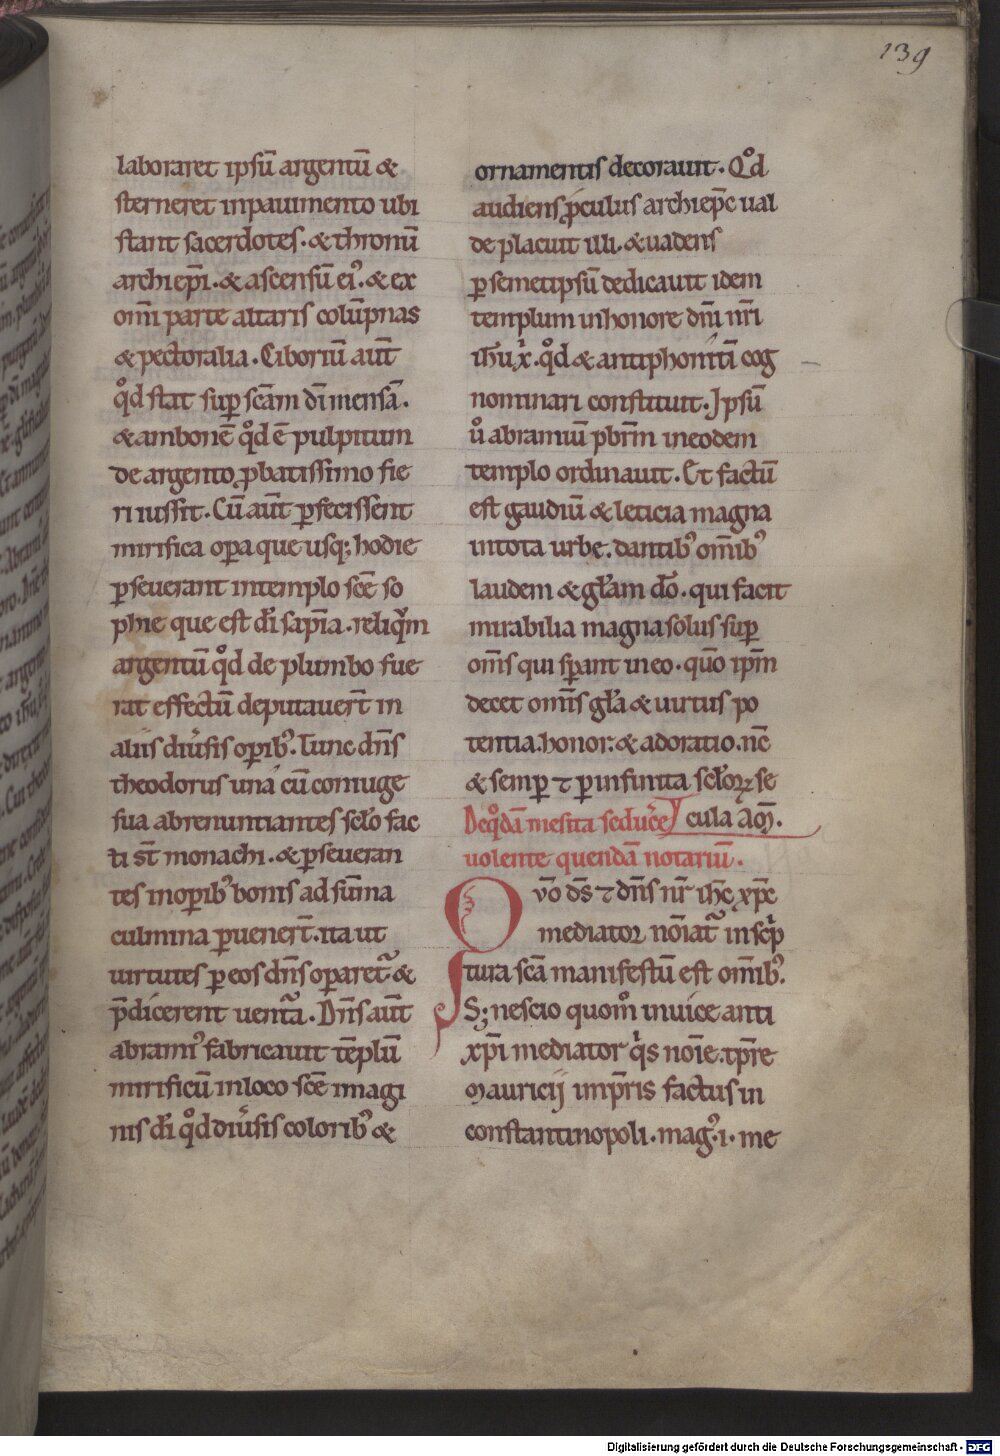 139
laboraret ipsū argentū &
sterneret inpauimento ubi
stant sacerdotes. & thronū
archiep̄i. & ascensū ei᾽. & ex
om̄i parte altaris colūpnas
& pectoralia. Ciboriū aūt
qͦd stat suꝑ sc̄am dī mensā.
& ambonē qͦd ē pulpitum
de argento ꝓbatissimo fie
ri iussit. Cū aūt ꝑfecissent
mirifica oꝑa que usq; hodie
ꝑseuerant intemplo sc̄e so
phie que est dī sap̄ia. reliqͣm
argentū qͦd de plumbo fue
rat effectū deputauer̄t in
aliis diu͛sis oꝑib᾽. Tunc dn̄s
theodorus una cū coniuge
sua abrenuntiantes sclo᷑ fac
ti st̄ monachi. & ꝑseueran
tes inoꝑib᾽ bonis ad sūma
culmina ꝑuener̄t. ita ut
uirtutes ꝑ eos dn̄s oꝑaret᷑ &
p̄dicerent uentᷓa. Dn̄s aūt
abrami᾽ fabricauit tēplū
mirificū inloco sc̄e imagi
nis dn̄i qͦd diu͛sis colorib᾽ &
ornamentis decorauit. Qͦd
audiens ꝓculus archiep̄c ual
de placuit illi. & uadens
ꝑ semetipsū dedicauit idem
templum inhonore dn̄i nr̄i
ih̄u x̄. qͦd & antiphonitā cog
nominari constituit. Ipsū
uͦ abramiū pbr̄m ineodem
templo ordinauit. Et factū
est gaudiū & leticia magna
intota urbe. dantib᾽ om̄ib᾽
laudem & gl̄am dō. qui facit
mirabilia magna solus suꝑ
om̄s qui sꝑant ineo. quō ip̄m
decet om̄is gl̄a & uirtus po
tentia. honor. & adoratio. nc̄
& semꝑ ⁊ ꝑ infinita sclo᷑ꝝ se
cula am̄.
De qͦdā mesita seduc͛e
uolente quendā notariū.
Quō ds̄ ⁊ dn̄s nr̄ ih̄c xp̄c
mediator nōiat᷑ in scͥp
tura sc̄a manifestū est om̄ib᾽.
S; nescio quomͦ inuice anti
xp̄i mediator qͥs nōie. tp̄re
Mauricij imp̄ris factus in
constantinopoli. mag᾽. i. me
Digitalisierung gefördert durch die Deutsche Forschungsgemeinschaft - DFG